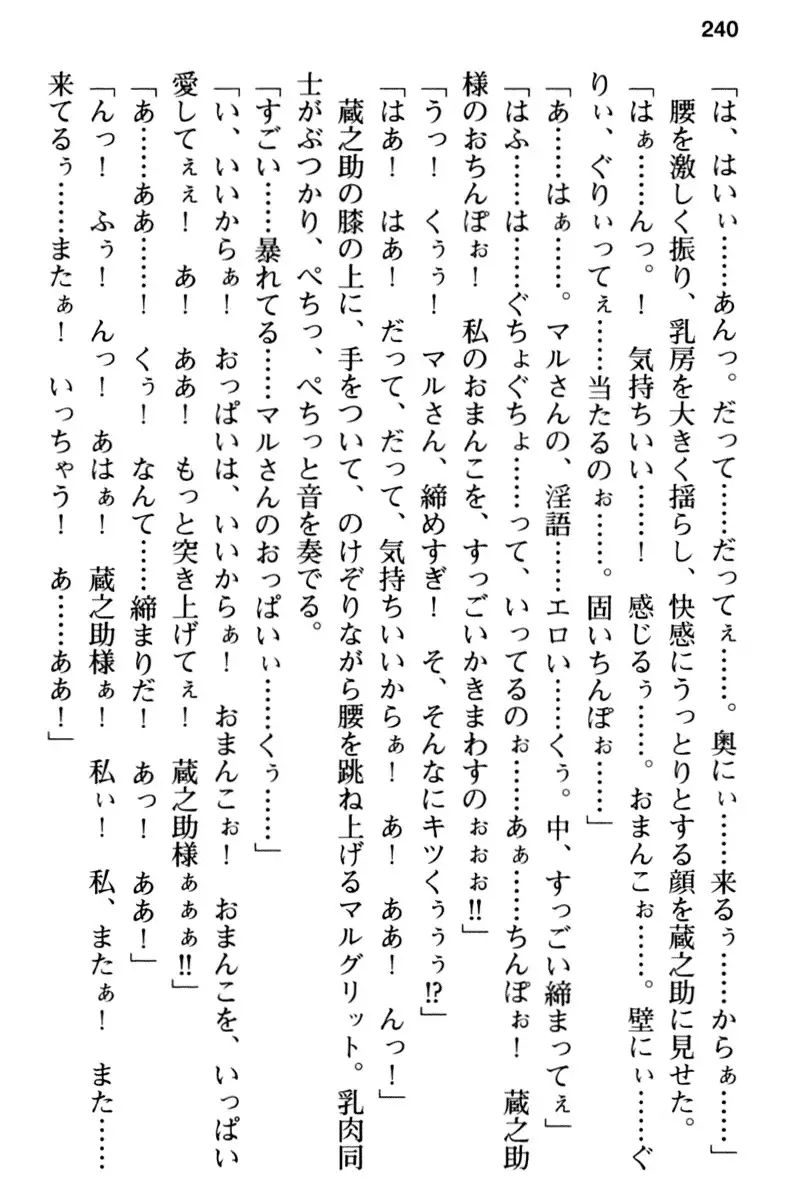 240
「は、はいぃ……あんっ。だって……だってぇ……。奥にぃ……来るぅ……からぁ……」
腰を激しく振り、乳房を大きく揺らし、快感にうっとりとする顔を蔵之助に見せた。
「はぁ……んっ。！　気持ちいい……！　感じるぅ……。おまんこぉ……。壁にぃ……ぐ
りぃ、ぐりぃってぇ……当たるのぉ……。固いちんぽぉ……」
「あ……はぁ……。マルさんの、淫語……エロい……くぅ。中、すっごい締まってぇ」
「はふ……は……ぐちょぐちょ……って、いってるのぉ……あぁ……ちんぽぉ！　蔵之助
様のおちんぽぉ！　私のおまんこを、すっごいかきまわすのぉぉぉ!!」
「うっ！　くぅぅ！　マルさん、締めすぎ！　そ、そんなにキツくぅぅぅ!?」
「はあ！　はあ！　だって、だって、気持ちいいからぁ！　あ！　ああ！　んっ！」
蔵之助の膝の上に、手をついて、のけぞりながら腰を跳ね上げるマルグリット。乳肉同
士がぶつかり、ぺちっ、ぺちっと音を奏でる。
「すごい……暴れてる……マルさんのおっぱいぃ……くぅ……」
「い、いいからぁ！　おっぱいは、いいからぁ！　おまんこぉ！　おまんこを、いっぱい
愛してぇぇ！　あ！　ああ！　もっと突き上げてぇ！　蔵之助様ぁぁぁ!!」
「あ……ああ……！　くぅ！　なんて……締まりだ！　あっ！　ああ！」
「んっ！　ふぅ！　んっ！　あはぁ！　蔵之助様ぁ！　私ぃ！　私、またぁ！　また……
来てるぅ……またぁ！　いっちゃう！　あ……ああ！」